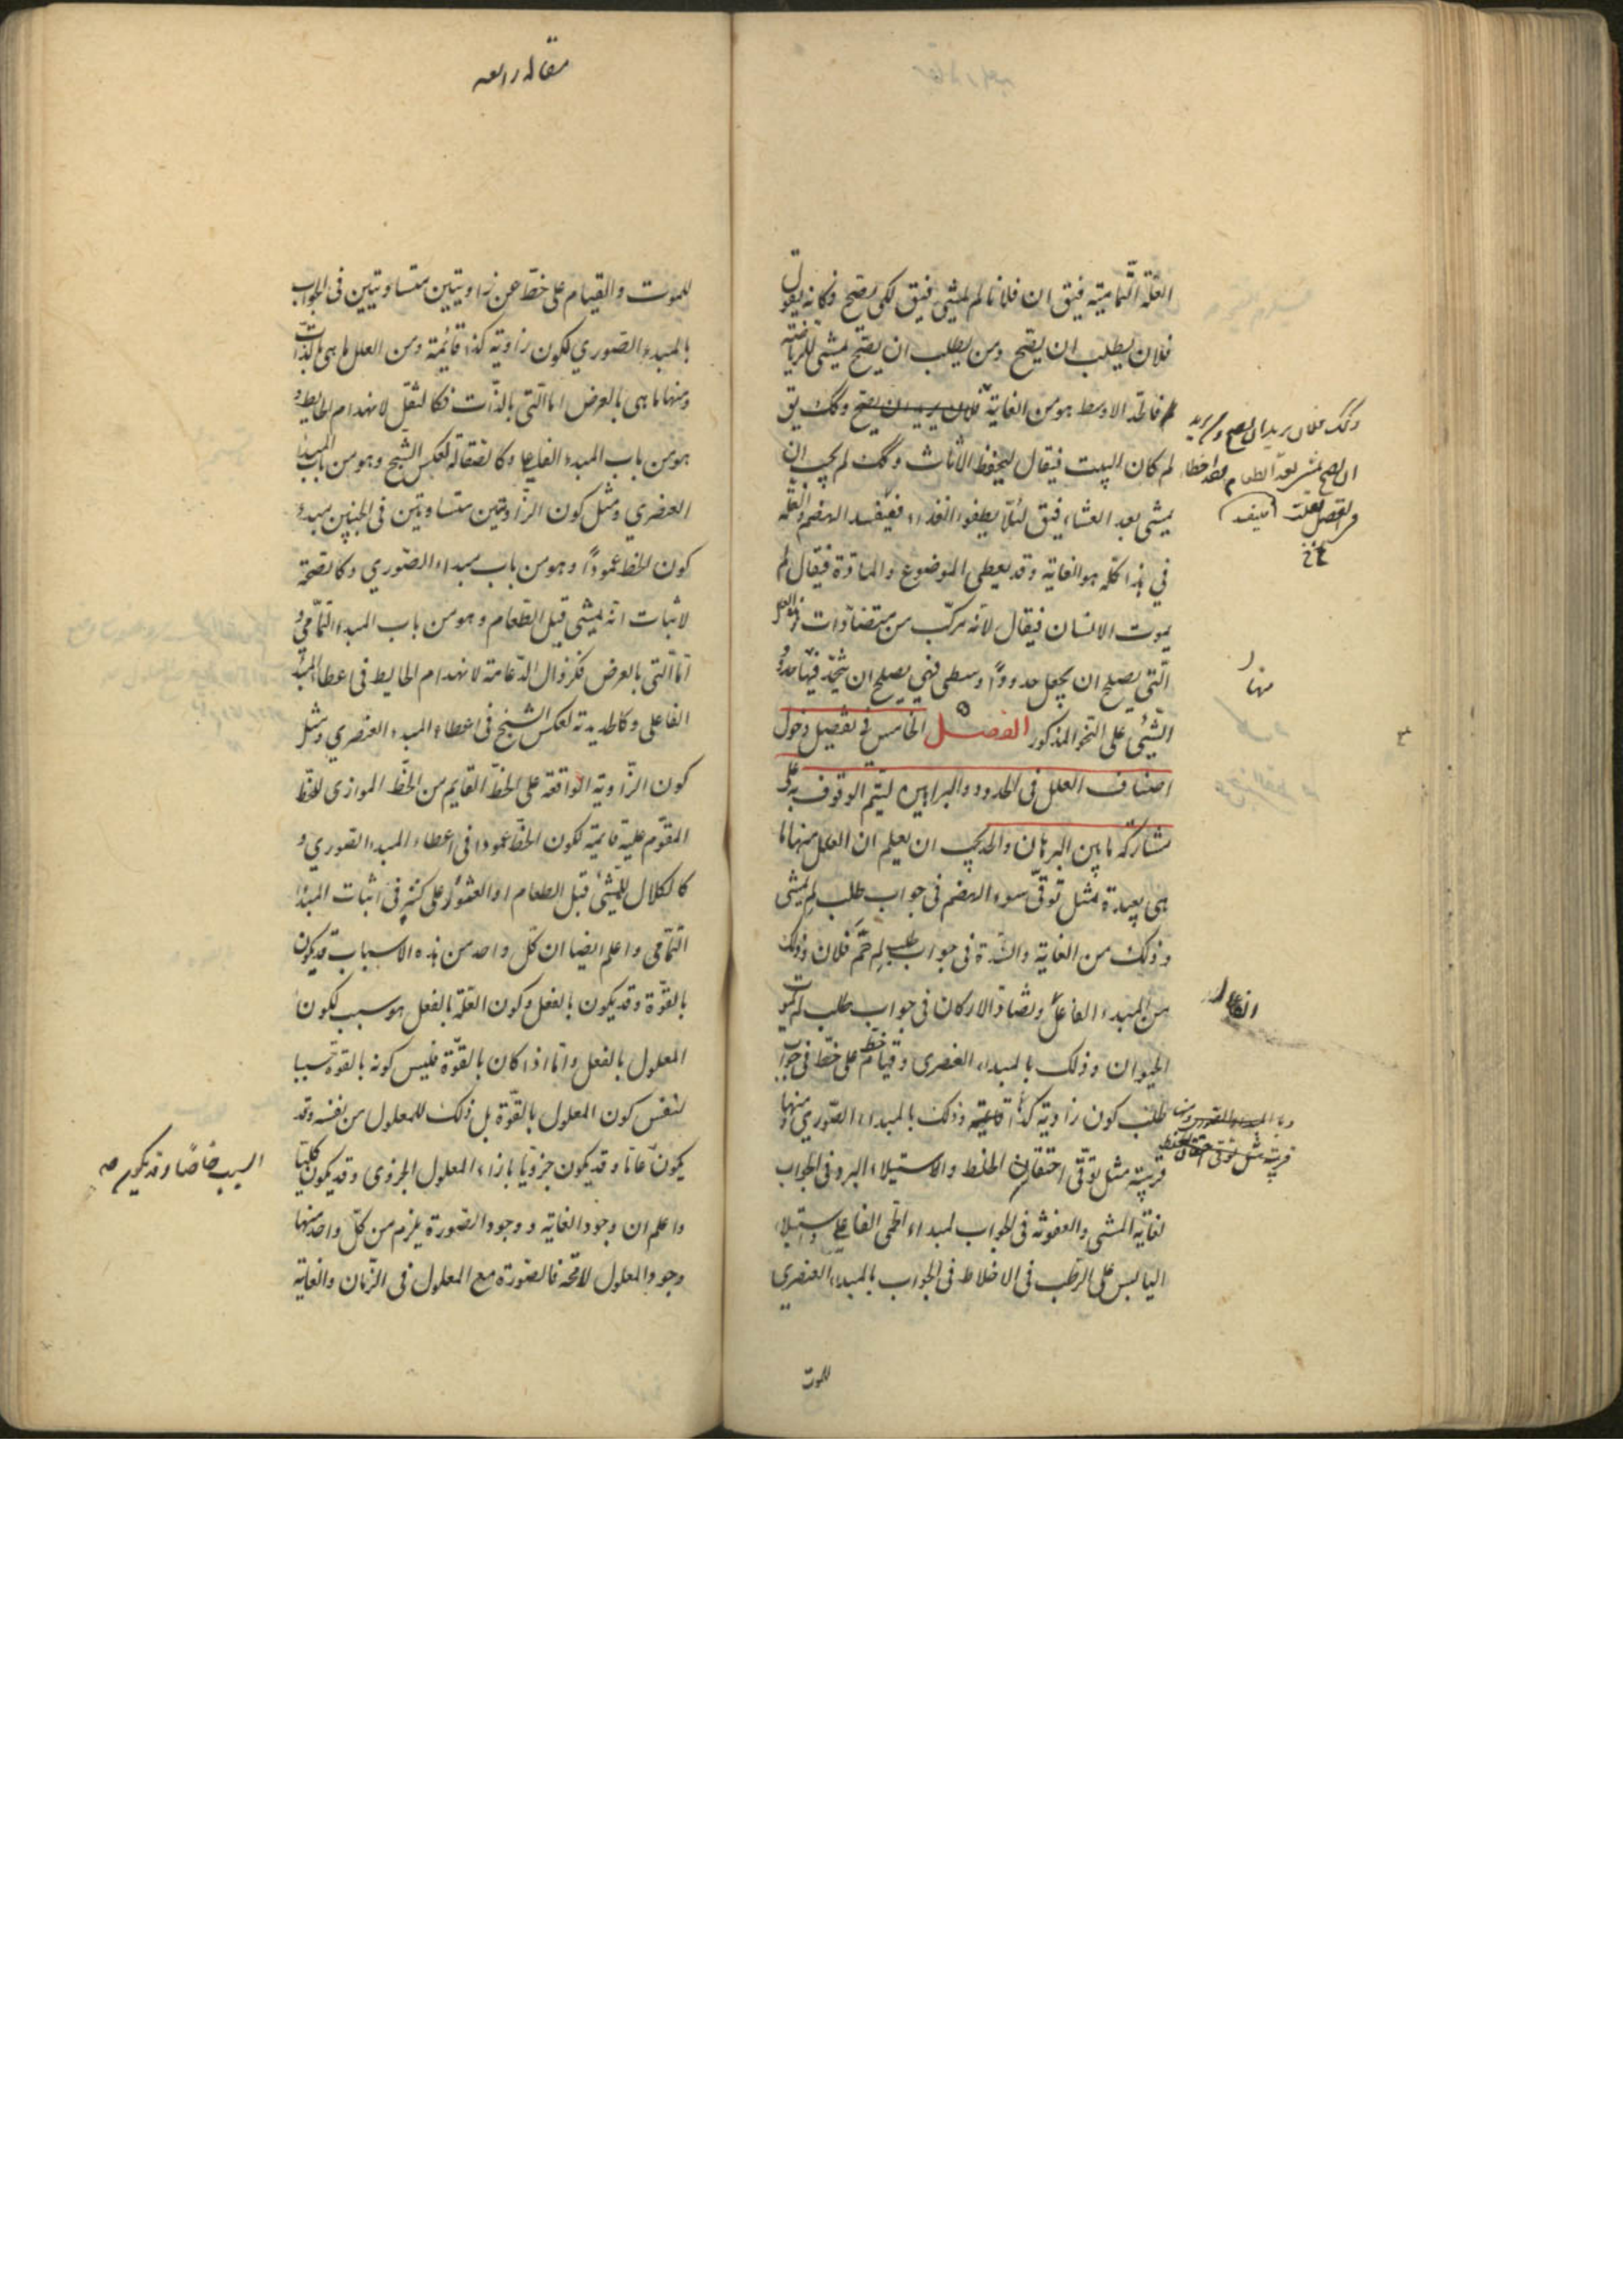 العلة التمامية فيق ان فلانا لم يمشي فيق لكي يصح فكانه يقول
فلان يطلب ان يصح ومن يطلب ان يصح يمشي للرياضة
فالحد الاوسط هو من الغاية فلان يريد ان يصح وكك يق
لم كان البيت فيقال ليحفظ الاثاث وكك لم يجب ان
يمشي بعد العشاء فيق لئلا يطفوا الغذاء فيفسد الهضم والعلة
في هذا كله هو الغاية وقد يعطي الموضوع والمادة فيقال لم
يموت الانسان فيقال لانه مركب من متضادات
التي يصلح ان يجعل حدودا وسطى فهي يصلح ان
الشيء على النحو المذكور الفصل الخامس في تفصيل دخول
اصناف العلل في الحدود والبراهين ليتم الوقوف به على
مشاركة ما بين البرهان والحد يجب ان يعلم ان العلل منها ما
هي بعيدة مثل توقي سوء الهضم في جواب طلب لم يمشي
وذلك من الغاية والسدة في جواب طلب لم حم فلان وذلك
من المبدء الفاعل وتضاد الاركان في جواب طلب لم يموت
الحيوان وذلك بالمبداء العنصري وقيام خط على خط في جواب
طلب كون زاوية كذا قائمة وذلك بالمبداء الصوري ومنها
قريبة مثل توقي احتقان الخلط والاستيلاء البرد في الجواب
لغاية المشي والعفونة في الجواب لمبداء الحمى الفاعلي واستيلاء
اليابس على الرطب في الاخلاط في الجواب بالمبداء العنصري
للموت
وكك فلان يريد ان يصح
ان يصح يمشي بعد الطعام
منها
مقاله رابعه
للموت والقيام على خط عن زاويتين متساويتين في الجواب
بالمبدء الصوري لكون زاوية كذا قائمة ومن العلل ما هي بالذات
ومنها ما هي بالعرض اما التي بالذات فكالثقل لانهدام الحايط و
هو من باب المبدء الفاعلي وكالصقالة لعكس الشبح وهو من باب المبدا
العنصري ومثل كون الزاويتين متساويتين في الجنبين مبدء
كون الخط عمودا وهو من باب مبداء الصوري وكالصحة
لاثبات انه يمشي قبل الطعام وهو من باب المبداء التمامي و
اما التي بالعرض فكزوال الدعامة لانهدام الحايط في اعطاء المبدا
الفاعلي وكالحديدية لعكس الشبح في اعطاء المبدء العنصري ومثل
كون الزاوية الواقعة على الخط القايم من الخط الموازي للخط
المقوم عليه قايمة لكون الخط عمودا في اعطاء المبدء الصوري و
كالكلال للمشي قبل الطعام او العثور على كنز في اثبات المبدا
التمامي واعلم ايضا ان كل واحد من هذه الاسباب قد يكون
بالقوة وقد يكون بالفعل وكون العلة بالفعل هو سبب لكون
المعلول بالفعل واما اذا كان بالقوة فليس كونه بالقوة سببا
لنفس كون المعلول بالقوة بل ذلك للمعلول من نفسه وقد
يكون عاما وقد يكون جزويا بازاء المعلول الجزوي وقد يكون كليا
واعلم ان وجود الغاية ووجود الصورة يلزم من كل واحد منها
وجود المعلول لا محة فالصورة مع المعلول في الزمان والغاية
السبب خاصا وقد يكون صه